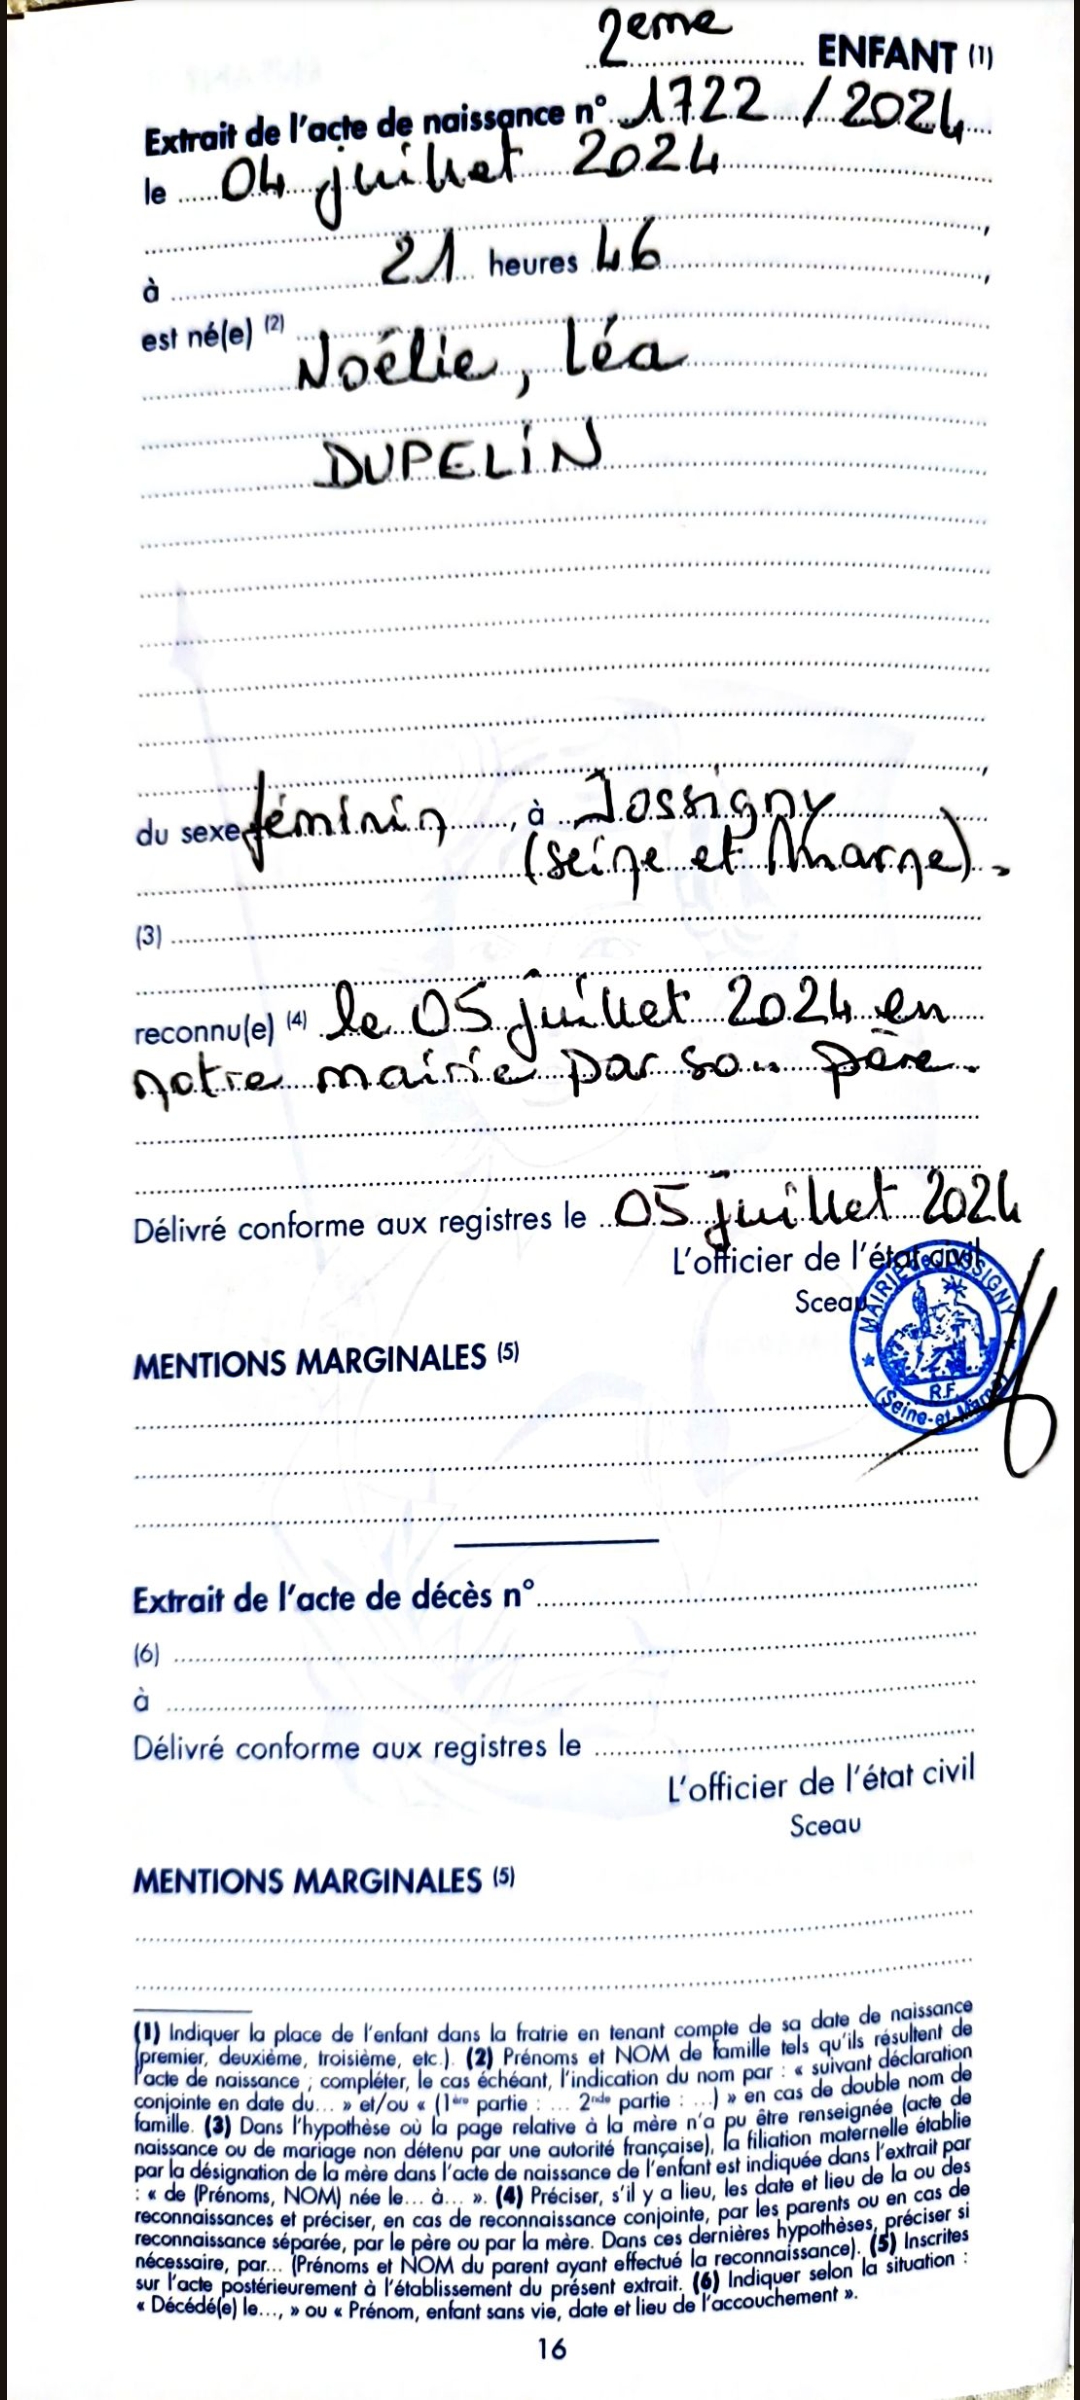 2eme ENFANT (1)
Extrait de l'acte de naissance n° 1722 / 2024
le 04 juillet 2024
à 21 heures 46
est né(e) (2)
Noélie, Léa
DUPELIN
du sexe féminin, à Jossigny
(seine et Marne).
(3)
reconnu(e) (4) le 05 juillet 2024 en
notre mairie par son père.
Délivré conforme aux registres le 05 juillet 2024
L'officier de l'état civil
Sceau
MAIRIE de JOSSIGNY
R.F.
(Seine-et-Marne)
MENTIONS MARGINALES (5)
Extrait de l'acte de décès n°
(6)
à
Délivré conforme aux registres le
L'officier de l'état civil
Sceau
MENTIONS MARGINALES (5)
(1) Indiquer la place de l'enfant dans la fratrie en tenant compte de sa date de naissance
(premier, deuxième, troisième, etc.). (2) Prénoms et NOM de famille tels qu'ils résultent de
l'acte de naissance ; compléter, le cas échéant, l'indication du nom par : « suivant déclaration
conjointe en date du... » et/ou « (1ère partie : ... 2nde partie : ...) » en cas de double nom de
famille. (3) Dans l'hypothèse où la page relative à la mère n'a pu être renseignée (acte de
naissance ou de mariage non détenu par une autorité française), la filiation maternelle établie
par la désignation de la mère dans l'acte de naissance de l'enfant est indiquée dans l'extrait par
: « de (Prénoms, NOM) née le... à... ». (4) Préciser, s'il y a lieu, les date et lieu de la ou des
reconnaissances et préciser, en cas de reconnaissance conjointe, par les parents ou en cas de
reconnaissance séparée, par le père ou par la mère. Dans ces dernières hypothèses, préciser si
nécessaire, par... (Prénoms et NOM du parent ayant effectué la reconnaissance). (5) Inscrites
sur l'acte postérieurement à l'établissement du présent extrait. (6) Indiquer selon la situation :
« Décédé(e) le..., » ou « Prénom, enfant sans vie, date et lieu de l'accouchement ».
16